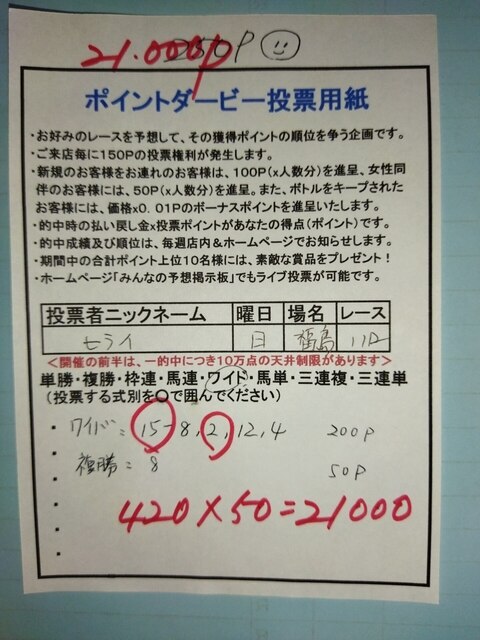 21.000P
250P
ポイントダービー投票用紙
・お好みのレースを予想して、その獲得ポイントの順位を争う企画です。
・ご来店毎に150Pの投票権利が発生します。
・新規のお客様をお連れのお客様は、100P(x人数分)を進呈、女性同
伴のお客様には、50P(x人数分)を進呈。また、ボトルをキープされた
お客様には、価格x0.01Pのボーナスポイントを進呈いたします。
・的中時の払い戻し金x投票ポイントがあなたの得点(ポイント)です。
・的中成績及び順位は、毎週店内&ホームページでお知らせします。
・期間中の合計ポイント上位10名様には、素敵な賞品をプレゼント!
・ホームページ「みんなの予想掲示板」でもライブ投票が可能です。
投票者ニックネーム 曜日 場名 レース
セライ 日 福島 11R
<開催の前半は、一的中につき10万点の天井制限があります>
単勝・複勝・枠連・馬連・ワイド・馬単・三連複・三連単
(投票する式別を〇で囲んでください)
・ワイド: 15-8,2,12,4 200P
・複勝: 8 50P
420×50=21000